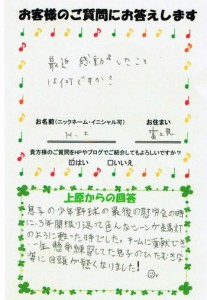 お客様のご質問にお答えします
最近感動したこと
は何ですか!
お名前(ニックネーム・イニシャル可)
お住まい
H.I
富士見
貴方様のご質問をHPやブログでご紹介してもよろしいですか?
☑はい □いいえ
上原からの回答
息子の少年野球の最後の慰労会の時
に、3年間振り返って色んなシーンが走馬灯
のように甦った時でした。チームに貢献でき
一年懸命練習してた息子のひたむきな
姿に目頭が熱くなりました!